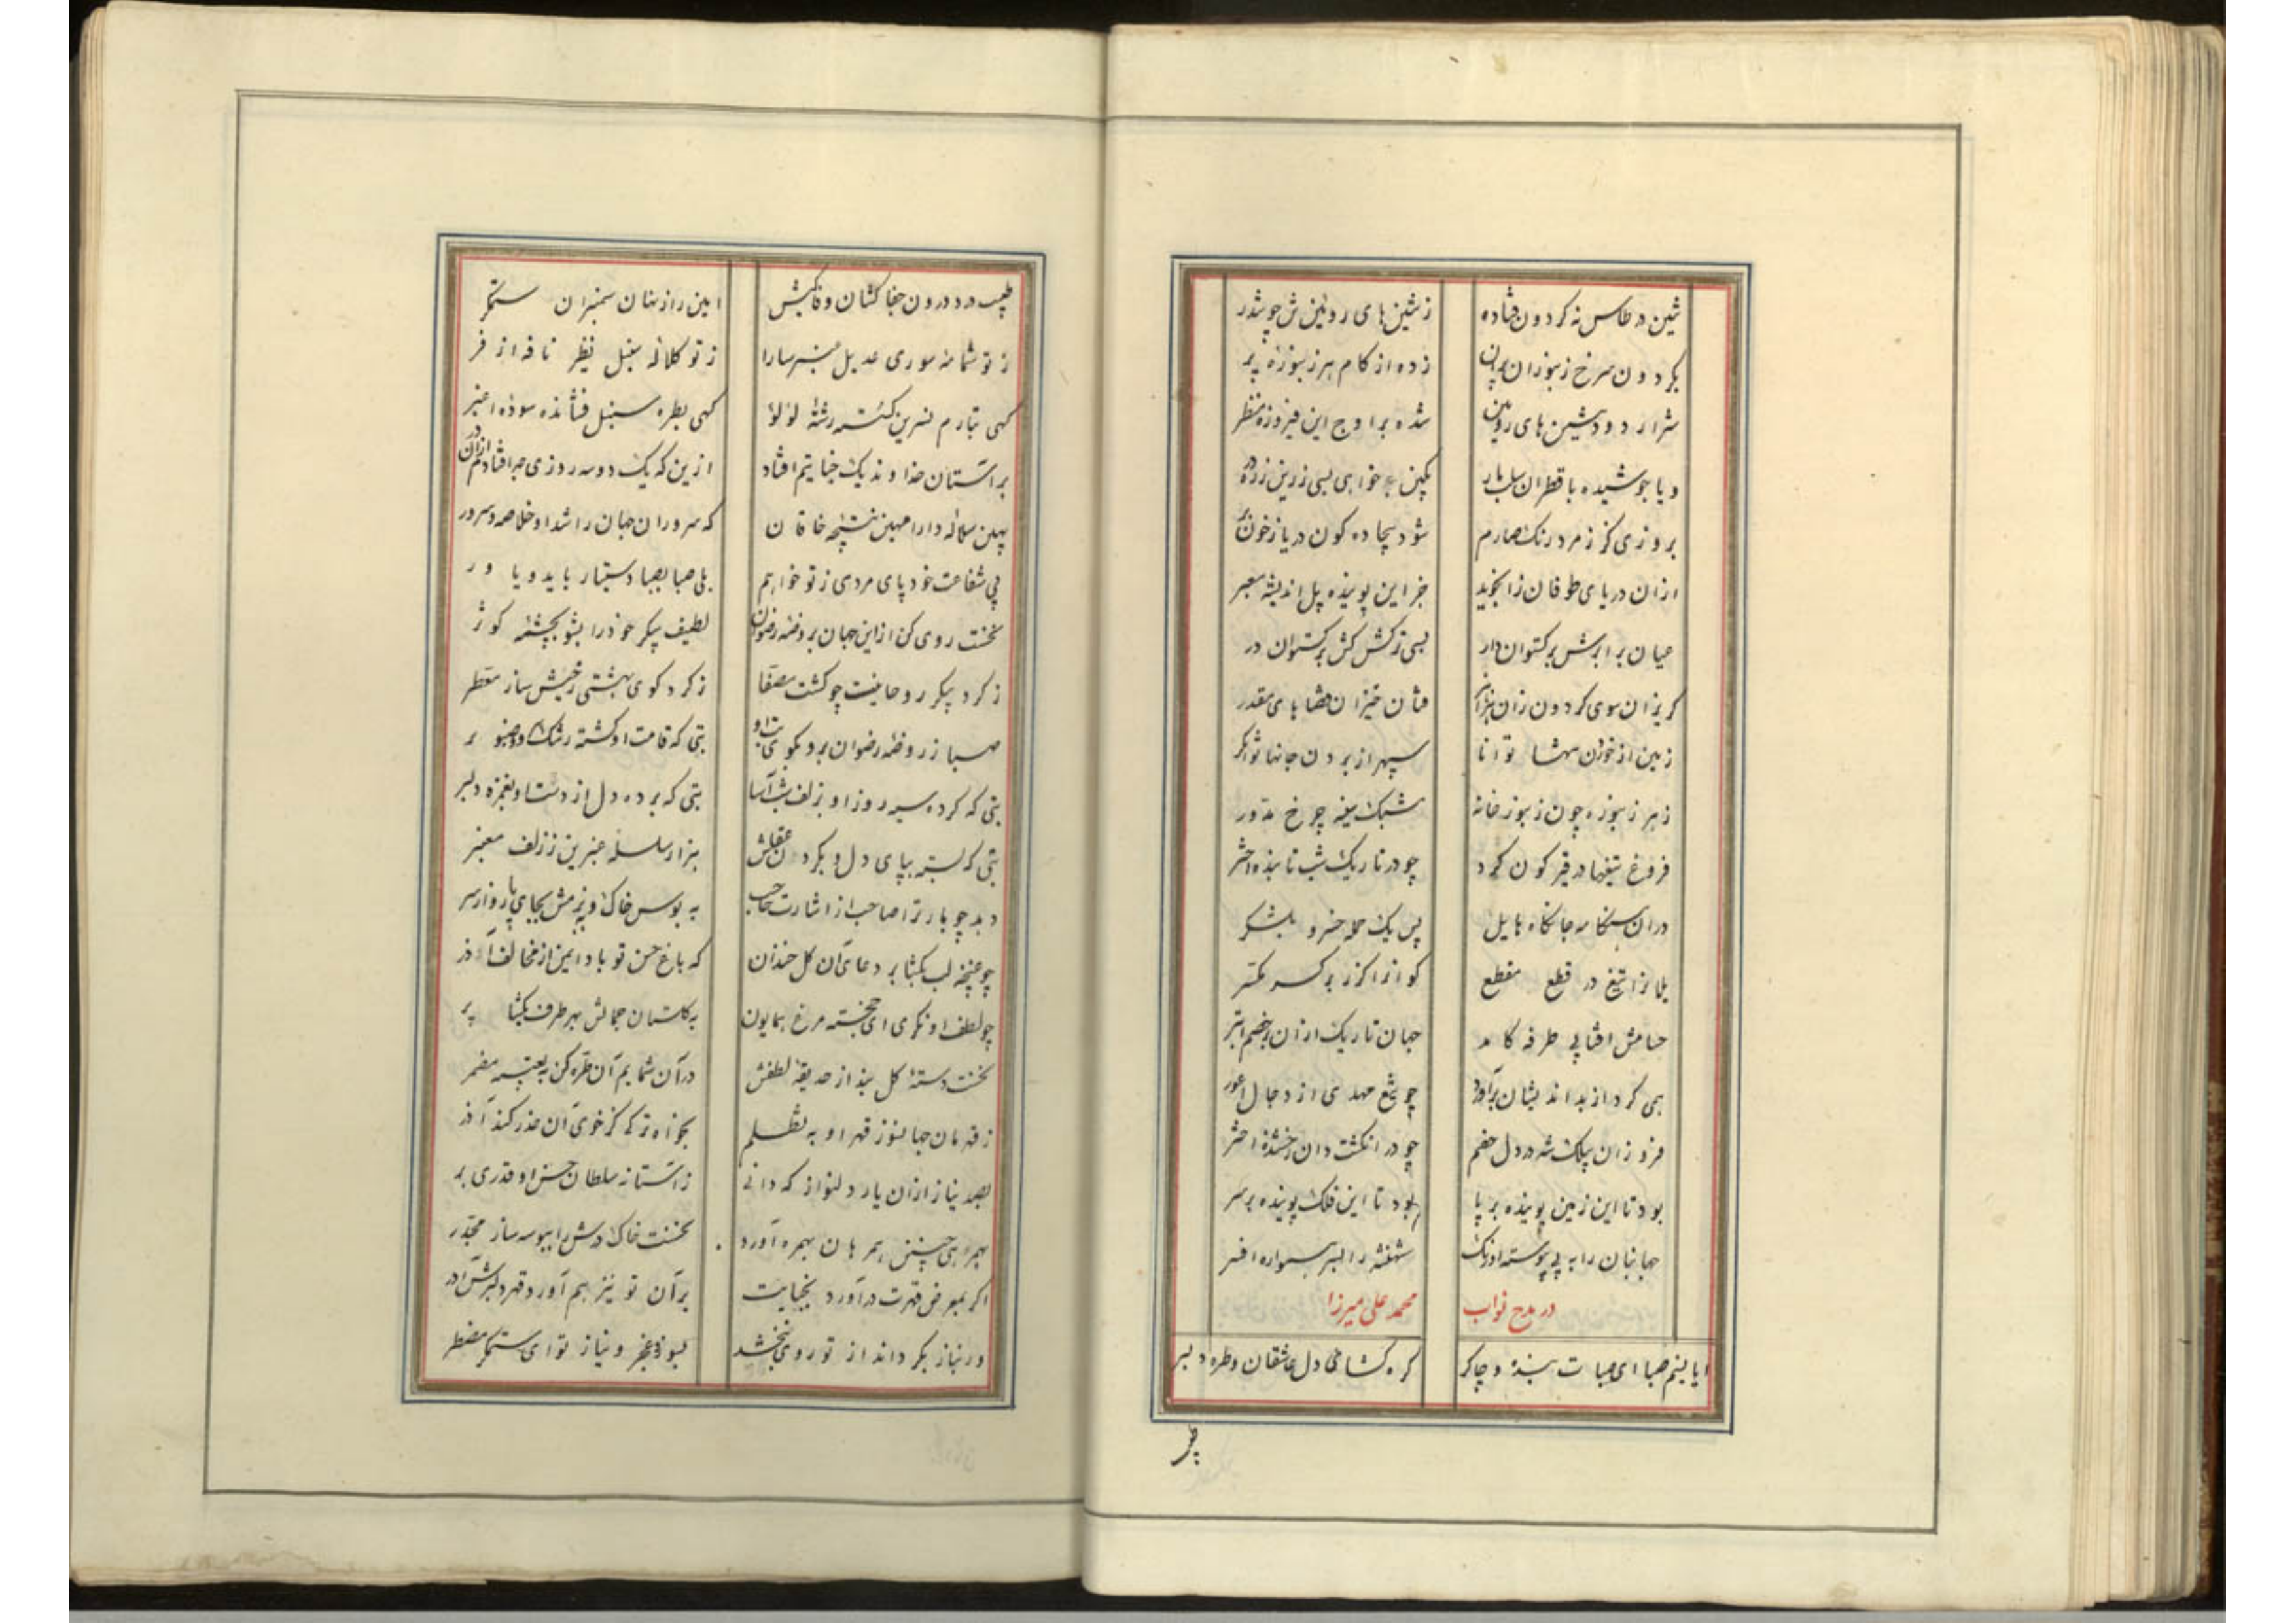 طنین در طاس نه کردون فتاده زشین های روئین تن چو تندر
بکردون سرخ زنبوران پران زده از کام هر زنبوره پر
شرار و دود شین های روئین شده بر اوج این فیروزه منظر
و یا جوشیده با قطران
بروزی کز زمرد رنک صارم شود بیجاده کون دریا ز خون بر
ازان دریای طوفان زا نجوید جز این پوینده پل اندیشه معبر
عیان بر ابرش برکستوان دار بسی ترکش کش برکستوان در
کریزان سوی کردون زان
زمین از خوردن تنها توانا سپهر از بردن جانها توانکر
زهر زنبوره چون زنبور خانه مشبک سینه چرخ مدور
فروغ تیغها در قیر کون کرد چو در تاریک شب تابنده اختر
دران هنکامه جانکاه هایل پس یک حمله خسرو بلشکر
یلانرا تیغ در قطع مقطع کوانرا کرز بر کسر مکسر
حسامش افتابی طرفه کامد جهان تاریک ازان بر خصم ابتر
همی کرد از بد اندیشان برآورد چو تیغ مهدی از دجال اعور
فروزان پیلک شه در دل خصم چو در انکشت دان رخشنده اخکر
بود تا این زمین پوینده بر پا بود تا این فلک پوینده بر سر
جهانبان را به پی پیوسته اورنک شهنشه را بسر همواره افسر
در مدح نواب محمد علی میرزا
ایا نسیم صبا ای صبات بنده و چاکر کره کشای دل عاشقان و طره دلبر
طبیب درد درون جفا کشان وفا کیش امین راز نهان سمنبران ستمکر
ز تو شمامه سوری عدیل عنبر سارا ز تو کلاله سنبل نظیر نافه اذفر
کهی بتارم نسرین کسسته رشته لؤلؤ کهی بطره سنبل فشانده سوده عنبر
بر آستان خداوند یک جنایتم افتاد ازین که یک دو سه روزی جدا فتادم ازان در
بهین سلاله دارا مهین نتیجه خاقان که سروران جهان راشد او خلاصه و سرور
پی شفاعت خود پای مردی ز تو خواهم بلی صبا بصبا دستیار باید و یاور
نخست روی کن از این جهان بروضه رضوان لطیف پیکر خود را بشو بچشمه کوثر
ز کرد پیکر روحانیت چو کشت مصفا ز کرد کوی بهشتی رخیش ساز معطر
صبا ز روضه رضوان برو بکوی بتی که قامت او کشته رشک و صنوبر
بتی که کرده سیه روز او بزلف شب آسا بتی که برده دل از دست او بغمزه دلبر
بتی که بسته بپای دل و بکردن عقلش هزار سلسله عنبرین ز زلف معنبر
دهد چو بار ترا صاحب از اشارت حاجب به بوس خاک و بزمش بجای پا رو از سر
چو غنچه لب بکشا بر دعای آن کل خندان که باغ حسن تو باد ایمن از مخالف آذر
چو لطف او نکری ای خجسته مرغ همایون به کلستان جمالش بهر طرف بکشا پر
نخست دسته کل بند از حدیقه لطفش در آن شمایم آن طره کن به تعبیه مضمر
ز قهرمان جهانسوز قهر او به تظلم بخواه ترکی کز خوی آن حذر کند آذر
بصد نیاز ازان یار دلنواز که دانی ز آستانه سلطان حسن او قدری بر
بهمراهی چنین همرهان بهره آورد نخست خاک درش را ببوسه ساز مجدر
اکر بمعرض قهرت درآورد بجنایت بر آن تو نیز هم آورد قهر دلبرش آور
ور نیاز بکرداند از تو روی نبخشد بسوز و عجز و نیاز تو ای ستمکر مضطر